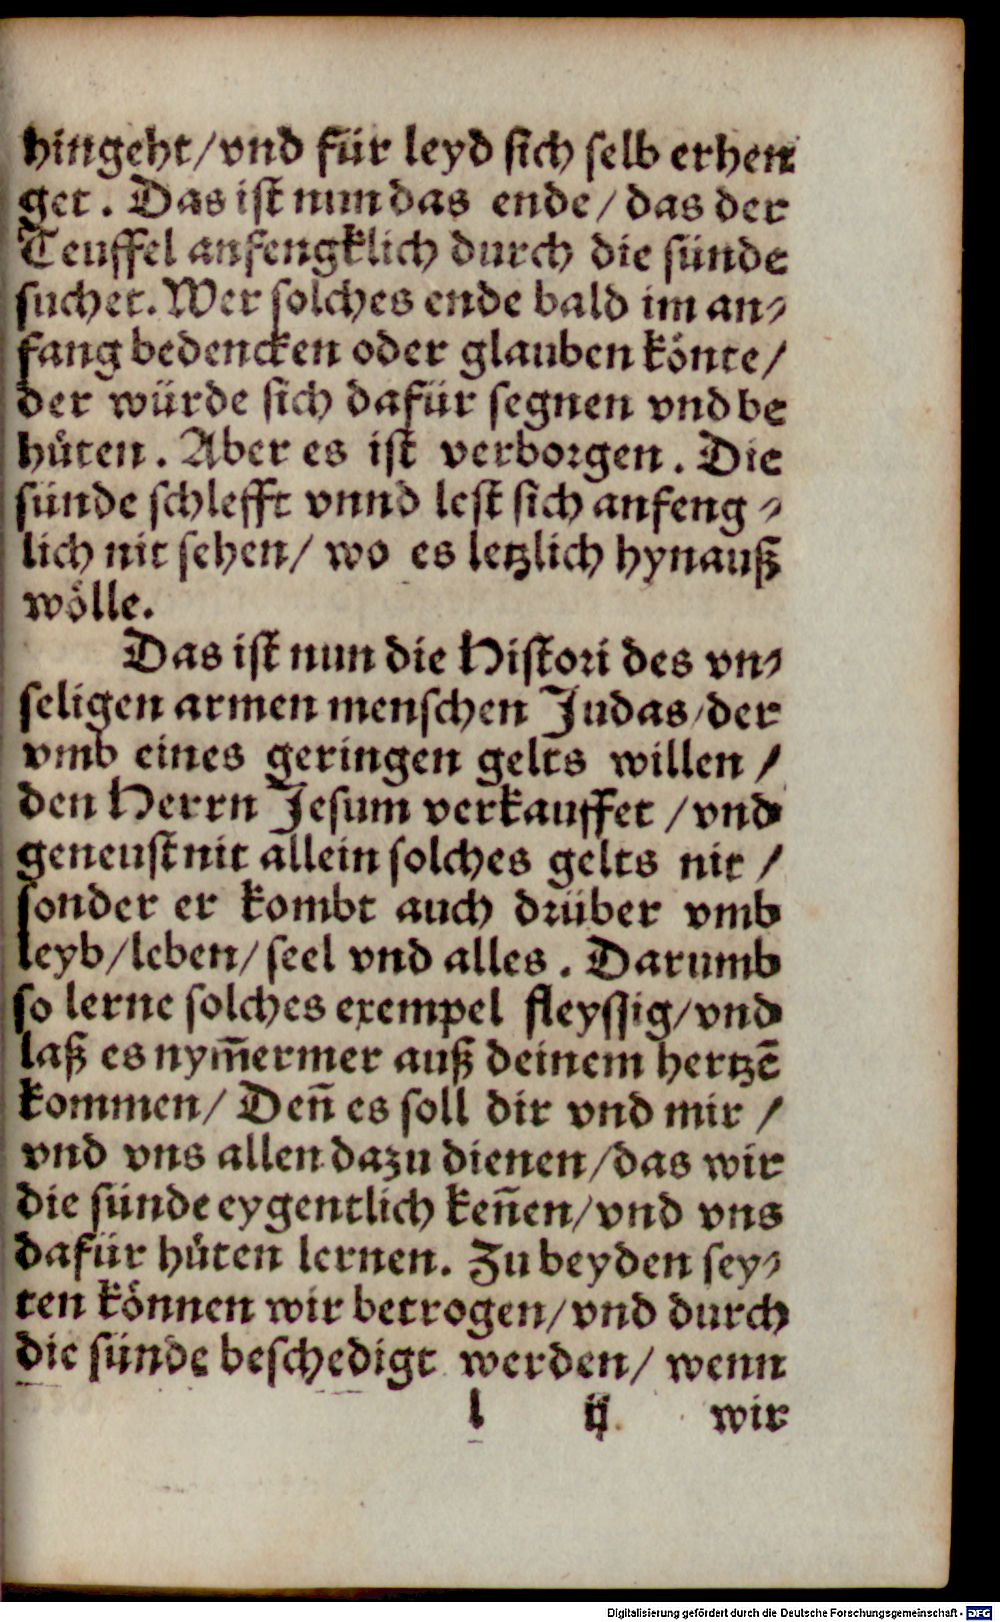 hingeht/ vnd für leyd sich selb erhen
get. Das ist nun das ende/ das der
Teuffel anfengklich durch die sünde
suchet. Wer solches ende bald im an⸗
fang bedencken oder glauben könte/
der würde sich dafür segnen vnd be
hüten. Aber es ist verborgen. Die
sünde schlefft vnnd lest sich anfeng⸗
lich nit sehen/ wo es letzlich hynauß
wölle.
Das ist nun die Histori des vn⸗
seligen armen menschen Judas/ der
vmb eines geringen gelts willen/
den Herrn Jesum verkauffet/ vnd
geneust nit allein solches gelts nit/
sonder er kombt auch drüber vmb
leyb/ leben/ seel vnd alles. Darumb
so lerne solches exempel fleyssig/ vnd
laß es nym̄ermer auß deinem hertzē
kommen/ Deñ es soll dir vnd mir/
vnd vns allen dazu dienen/ das wir
die sünde eygentlich keñen/ vnd vns
dafür hüten lernen. Zu beyden sey⸗
ten können wir betrogen/ vnd durch
die sünde beschedigt werden/ wenn
l ij wir
Digitalisierung gefördert durch die Deutsche Forschungsgemeinschaft - DFG